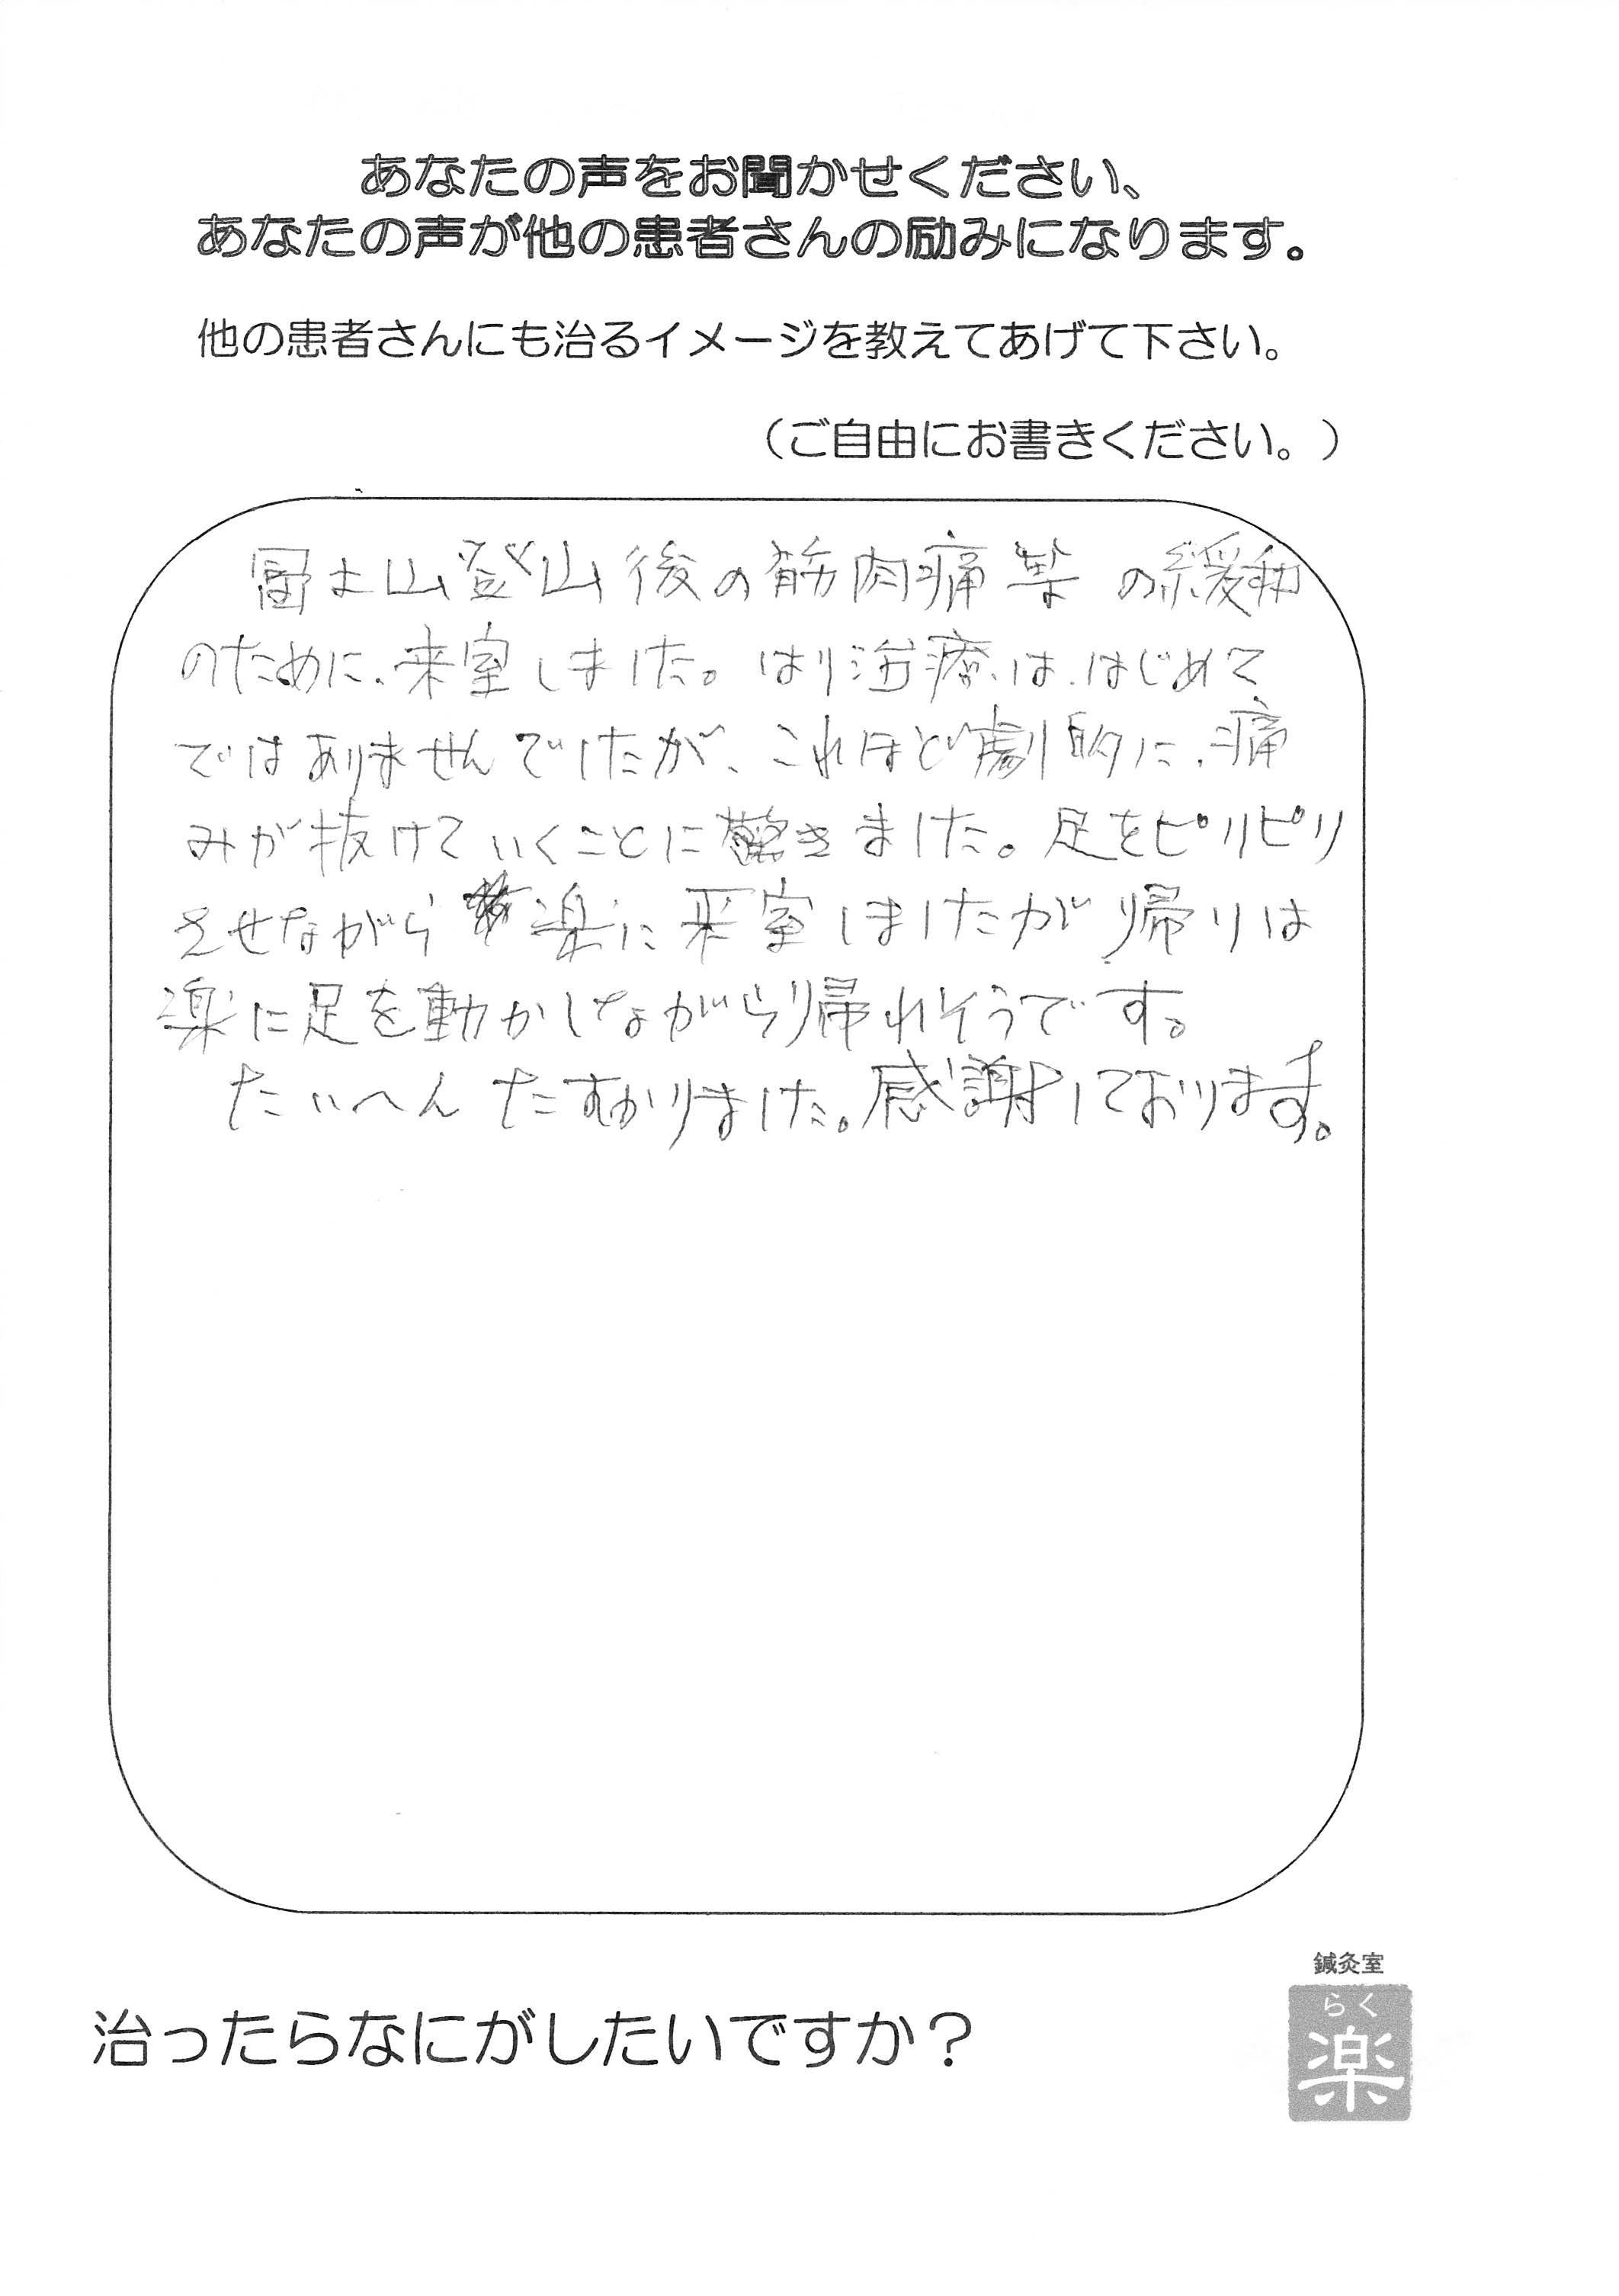 あなたの声をお聞かせください、
あなたの声が他の患者さんの励みになります。
他の患者さんにも治るイメージを教えてあげて下さい。
（ご自由にお書きください。）
冨士山登山後の筋肉痛等の緩和
のために、来室しました。はり治療は、はじめて
ではありませんでしたが、これほど劇的に、痛
みが抜けていくことに驚きました。足をピリピリ
させながら楽に来室しましたが帰りは
楽に足を動かしながら帰れそうです。
たいへんたすかりました。感謝しております。
治ったらなにがしたいですか？
鍼灸室
らく
楽